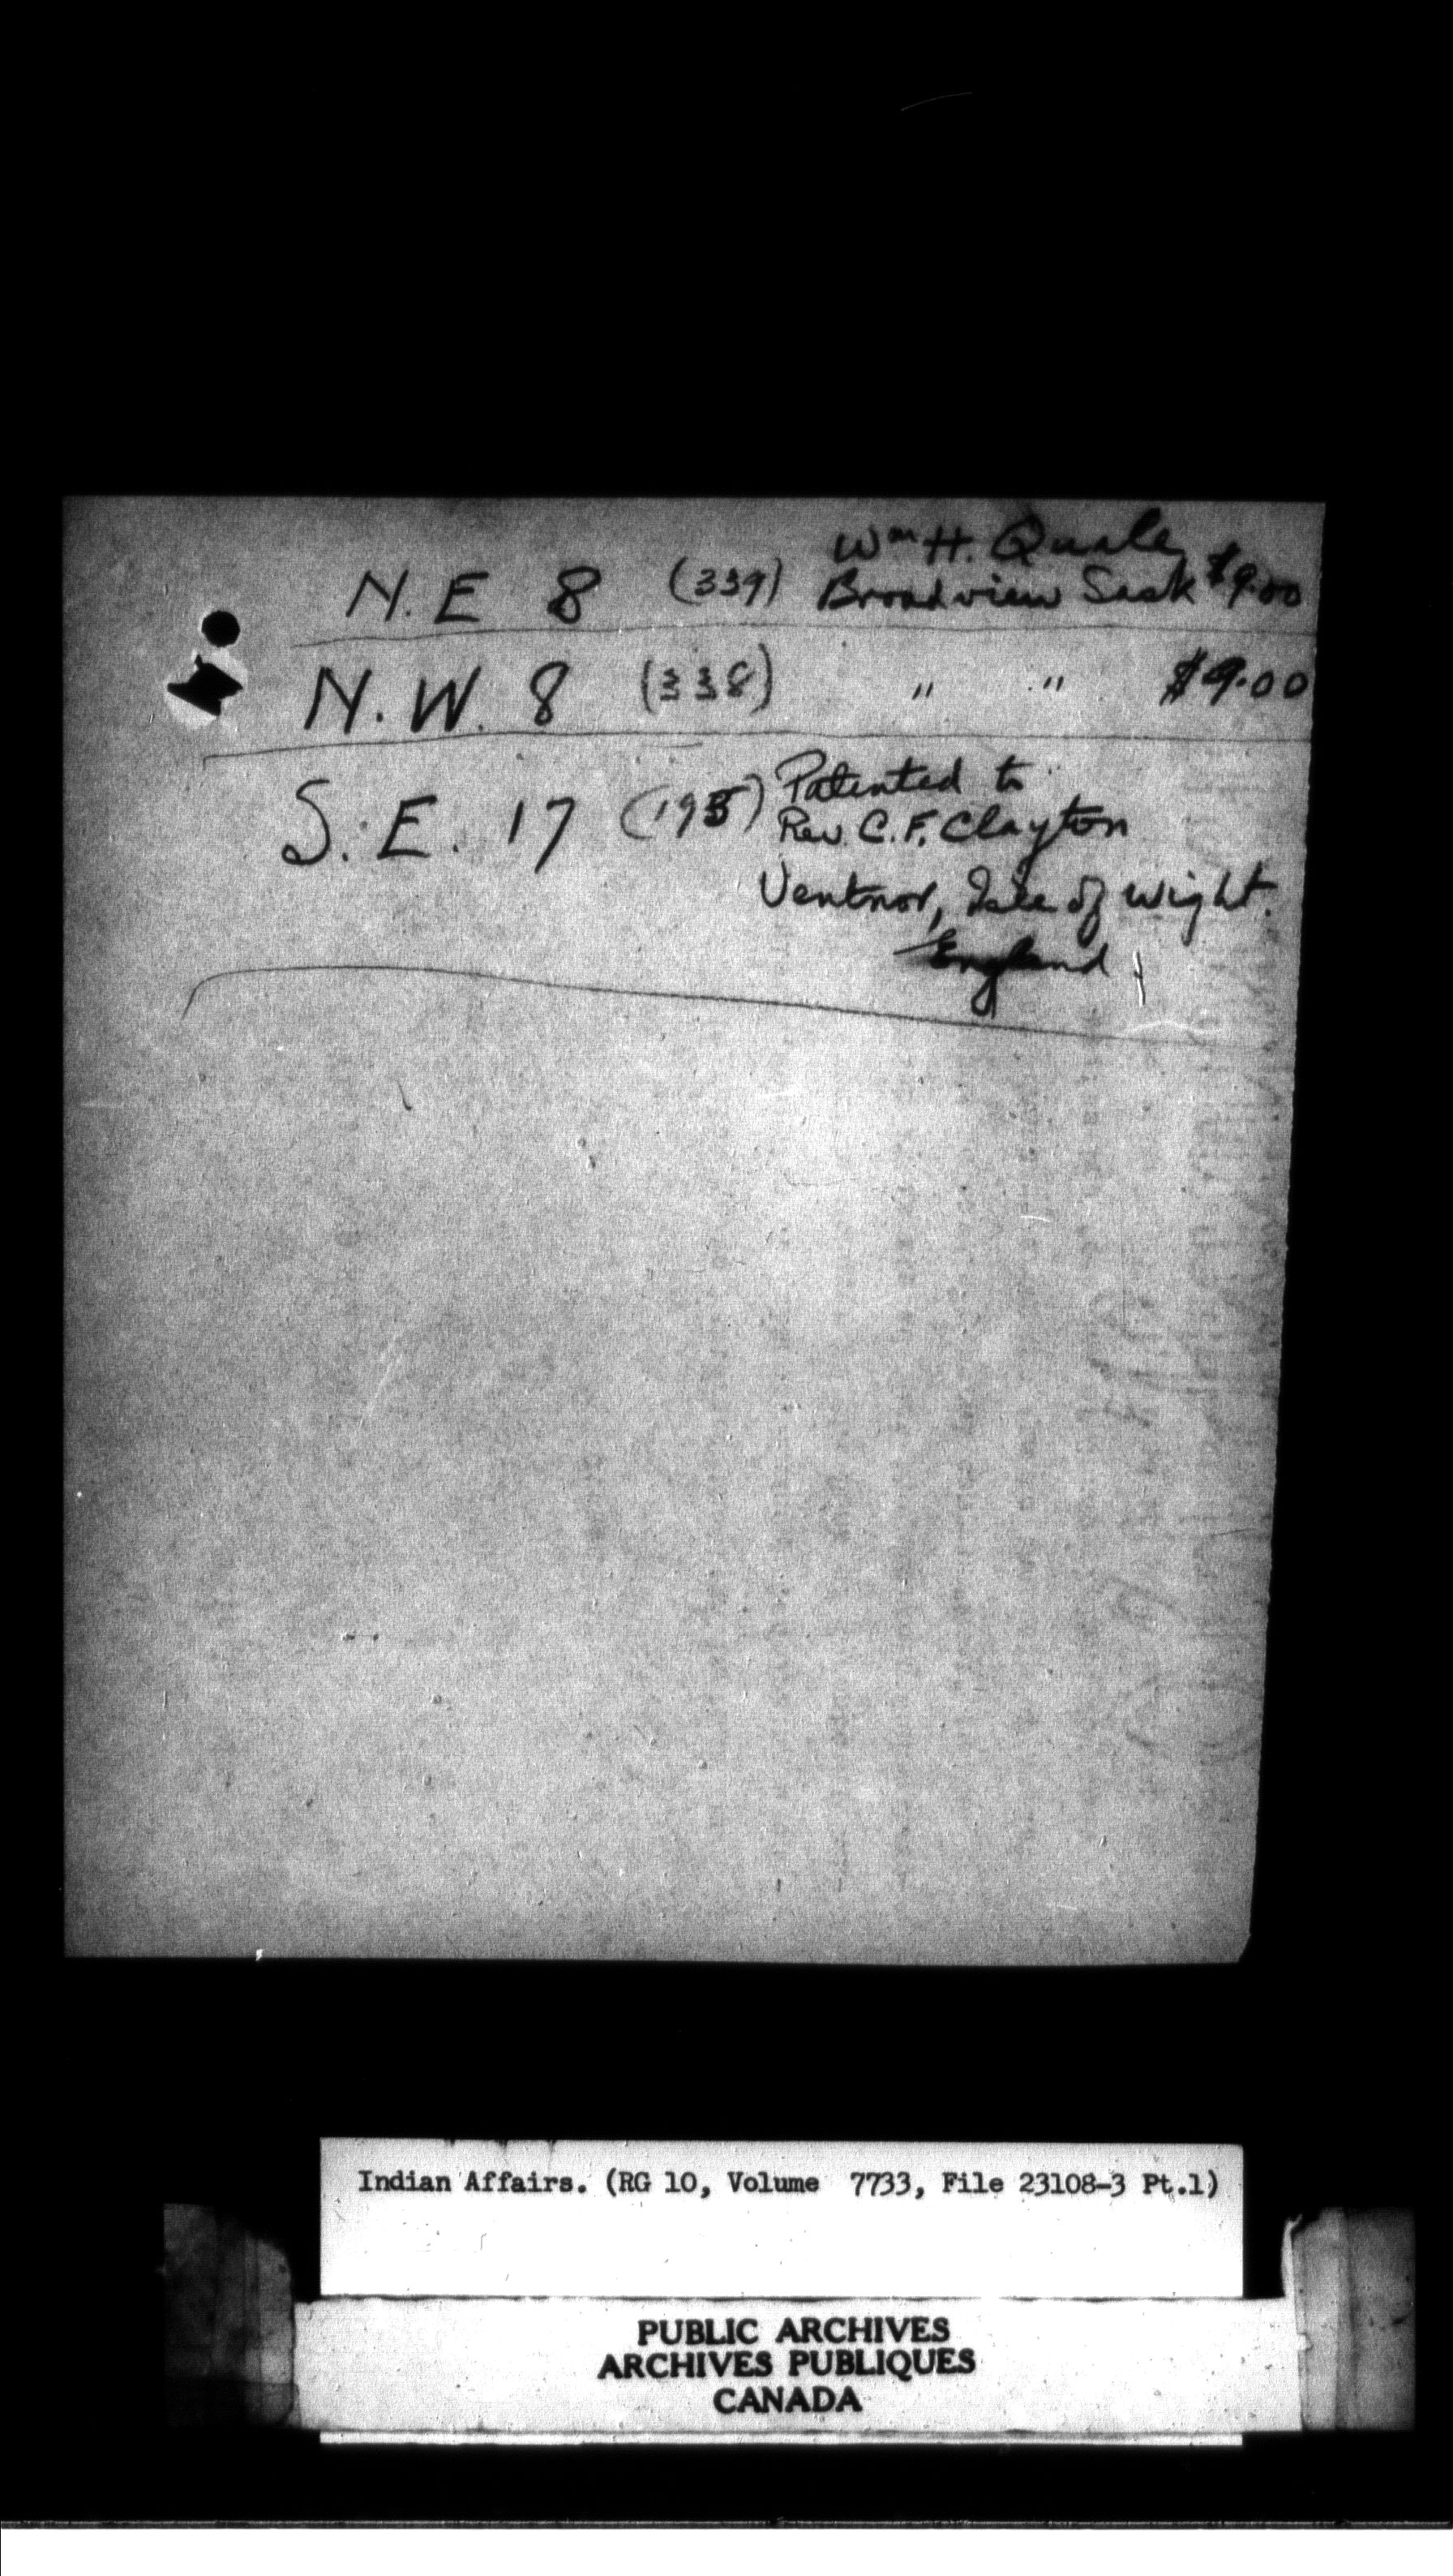 Wm H. Quale
N.E 8 (339) Broadview Sask $9.00
N.W. 8 (338) " " $9.00
S.E. 17 (195) Patented to
Rev. C.F. Clayton
Ventnor, Isle of Wight.
England
Indian Affairs. (RG 10, Volume 7733, File 23108-3 Pt.1)
PUBLIC ARCHIVES
ARCHIVES PUBLIQUES
CANADA